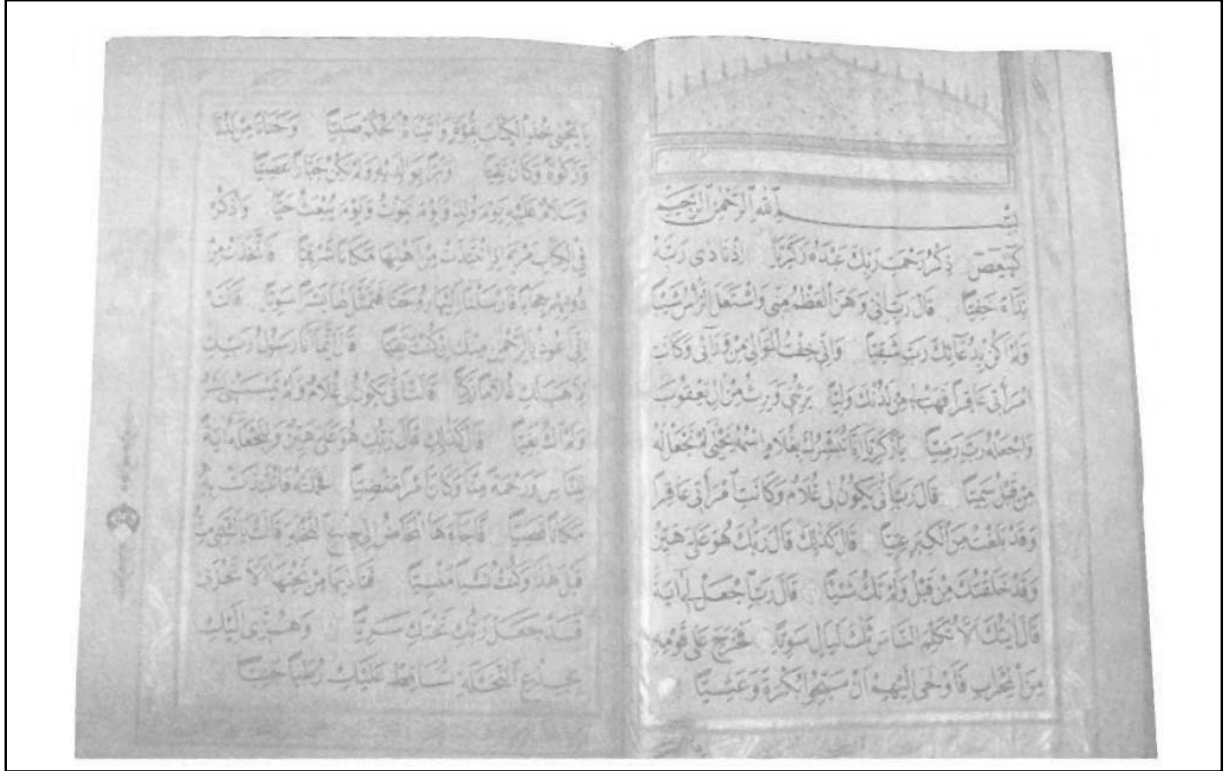 بِسْمِ اللهِ الرَّحْمٰنِ الرَّحِيمِ
كهيعص ذِكْرُ رَحْمَتِ رَبِّكَ عَبْدَهُ زَكَرِيَّا اِذْ نَادٰى رَبَّهُ
نِدَاءً خَفِيًّا قَالَ رَبِّ اِنِّى وَهَنَ الْعَظْمُ مِنِّى وَاشْتَعَلَ الرَّاْسُ شَيْبًا
وَلَمْ اَكُنْ بِدُعَائِكَ رَبِّ شَقِيًّا وَاِنِّى خِفْتُ الْمَوَالِىَ مِنْ وَرَائِى وَكَانَتِ
امْرَاَتِى عَاقِرًا فَهَبْ لِى مِنْ لَدُنْكَ وَلِيًّا يَرِثُنِى وَيَرِثُ مِنْ اٰلِ يَعْقُوبَ
وَاجْعَلْهُ رَبِّ رَضِيًّا يَا زَكَرِيَّا اِنَّا نُبَشِّرُكَ بِغُلَامٍ اسْمُهُ يَحْيٰى لَمْ نَجْعَلْ لَهُ
مِنْ قَبْلُ سَمِيًّا قَالَ رَبِّ اَنّٰى يَكُونُ لِى غُلَامٌ وَكَانَتِ امْرَاَتِى عَاقِرًا
وَقَدْ بَلَغْتُ مِنَ الْكِبَرِ عِتِيًّا قَالَ كَذٰلِكَ قَالَ رَبُّكَ هُوَ عَلَىَّ هَيِّنٌ
وَقَدْ خَلَقْتُكَ مِنْ قَبْلُ وَلَمْ تَكُ شَيْئًا قَالَ رَبِّ اجْعَلْ لِى اٰيَةً
قَالَ اٰيَتُكَ اَلَّا تُكَلِّمَ النَّاسَ ثَلٰثَ لَيَالٍ سَوِيًّا فَخَرَجَ عَلٰى قَوْمِهِ
مِنَ الْمِحْرَابِ فَاَوْحٰى اِلَيْهِمْ اَنْ سَبِّحُوا بُكْرَةً وَعَشِيًّا
يَا يَحْيٰى خُذِ الْكِتَابَ بِقُوَّةٍ وَاٰتَيْنَاهُ الْحُكْمَ صَبِيًّا وَحَنَانًا مِنْ لَدُنَّا
وَزَكٰوةً وَكَانَ تَقِيًّا وَبَرًّا بِوَالِدَيْهِ وَلَمْ يَكُنْ جَبَّارًا عَصِيًّا
وَسَلَامٌ عَلَيْهِ يَوْمَ وُلِدَ وَيَوْمَ يَمُوتُ وَيَوْمَ يُبْعَثُ حَيًّا وَاذْكُرْ
فِى الْكِتَابِ مَرْيَمَ اِذِ انْتَبَذَتْ مِنْ اَهْلِهَا مَكَانًا شَرْقِيًّا فَاتَّخَذَتْ مِنْ
دُونِهِمْ حِجَابًا فَاَرْسَلْنَا اِلَيْهَا رُوحَنَا فَتَمَثَّلَ لَهَا بَشَرًا سَوِيًّا قَالَتْ
اِنِّى اَعُوذُ بِالرَّحْمٰنِ مِنْكَ اِنْ كُنْتَ تَقِيًّا قَالَ اِنَّمَا اَنَا رَسُولُ رَبِّكِ
لِاَهَبَ لَكِ غُلَامًا زَكِيًّا قَالَتْ اَنّٰى يَكُونُ لِى غُلَامٌ وَلَمْ يَمْسَسْنِى بَشَرٌ
وَلَمْ اَكُ بَغِيًّا قَالَ كَذٰلِكِ قَالَ رَبُّكِ هُوَ عَلَىَّ هَيِّنٌ وَلِنَجْعَلَهُ اٰيَةً
لِلنَّاسِ وَرَحْمَةً مِنَّا وَكَانَ اَمْرًا مَقْضِيًّا فَحَمَلَتْهُ فَانْتَبَذَتْ بِهِ
مَكَانًا قَصِيًّا فَاَجَاءَهَا الْمَخَاضُ اِلٰى جِذْعِ النَّخْلَةِ قَالَتْ يَا لَيْتَنِى مِتُّ
قَبْلَ هٰذَا وَكُنْتُ نَسْيًا مَنْسِيًّا فَنَادٰيهَا مِنْ تَحْتِهَا اَلَّا تَحْزَنِى
قَدْ جَعَلَ رَبُّكِ تَحْتَكِ سَرِيًّا وَهُزِّى اِلَيْكِ
بِجِذْعِ النَّخْلَةِ تُسَاقِطْ عَلَيْكِ رُطَبًا جَنِيًّا